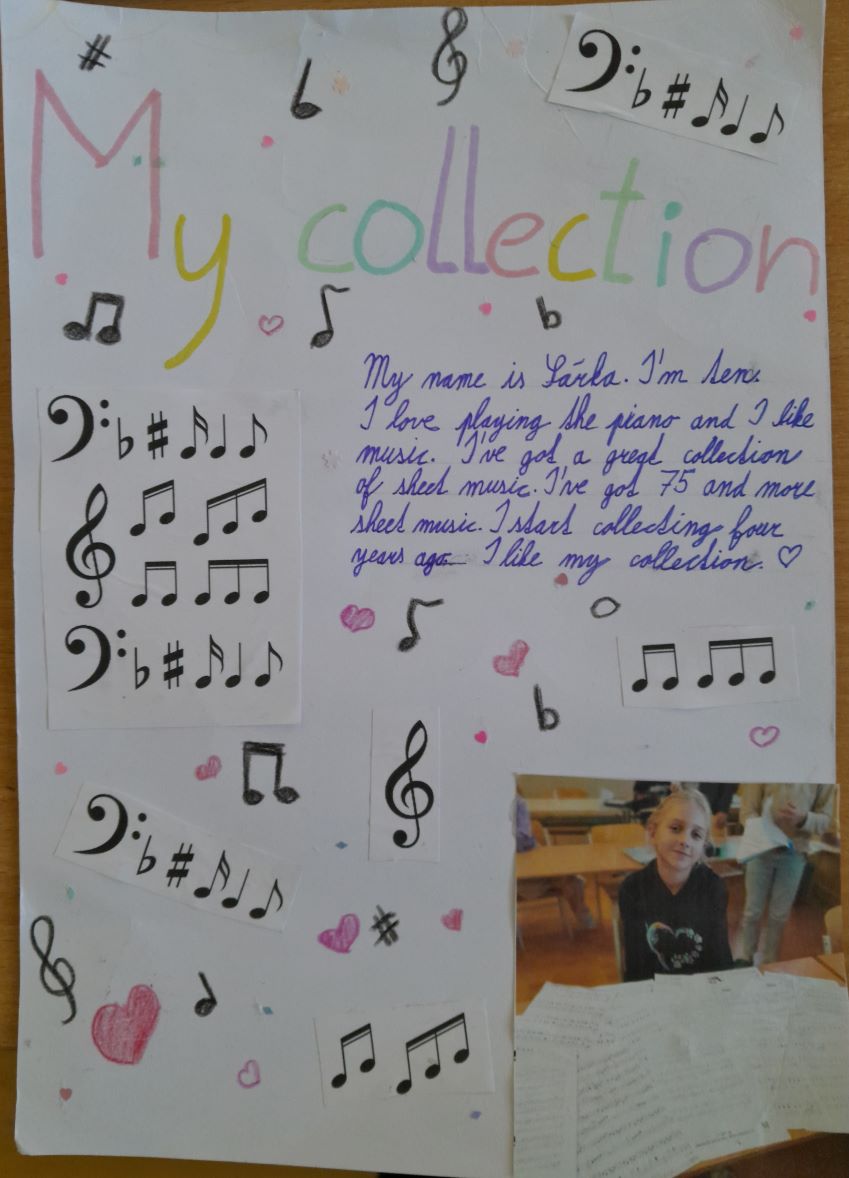 My collection
My name is Šárka. I'm ten.
I love playing the piano and I like
music. I've got a great collection
of sheet music. I've got 75 and more
sheet music. I start collecting four
years ago. I like my collection. ♡